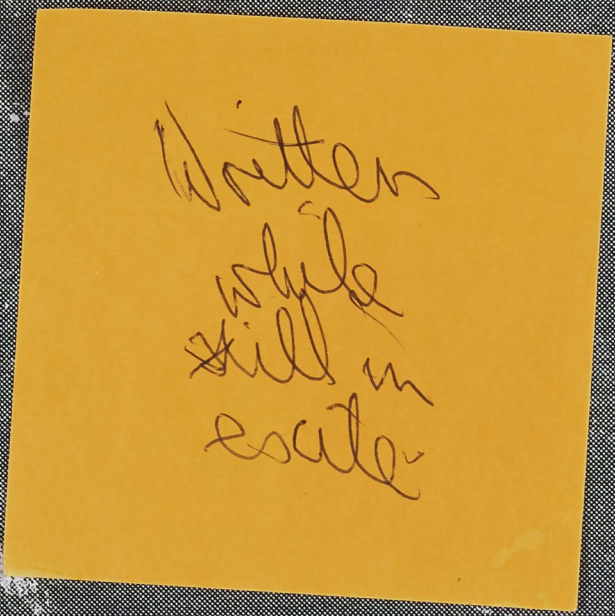 Written
while
still in
exile